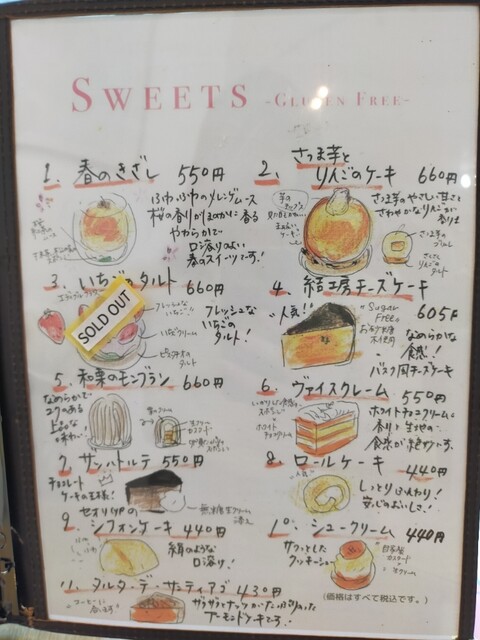 SWEETS -GLUTEN FREE-
1. 春のきざし 550円
ふわふわのメレンゲムース
桜の香りがほのかに香る
やわらかで
口溶けのよい
春のスイーツです!
2. さつま芋と
りんごのケーキ 660円
さつま芋のやさしい甘さと
さわやかなりんごが
3. いちごのタルト 660円
SOLD OUT
フレッシュな
いちご
フレッシュな
いちごの
タルト!
いちごクリーム
ピスタチオの
タルト
4. 結工房チーズケーキ
人気!!
605円
"Sugar
Free"
お砂糖
不使用
なめらかな
食感!
バスク風チーズケーキ
5. 和栗のモンブラン 660円
なめらかで
コクのある
味わい!
6. ヴァイスクレーム 550円
ホワイトチョコクリームの
香りと
食感が絶妙です。
ホワイト
チョコクリーム
7. ザッハトルテ 550円
チョコレート
ケーキの王様!
無糖生クリーム
添え
8. ロールケーキ 440円
人気!
しっとりふんわり!
安心のおいしさ!
9. シフォンケーキ 440円
絹のような
口溶け!
10. シュークリーム 440円
サクっとした
クッキーシュー
自家製
カスタード
生クリーム
11. タルタ・デ・サンティアゴ 430円
"コーヒーに
合います"
アーモンドケーキです!
(価格はすべて税込です。)